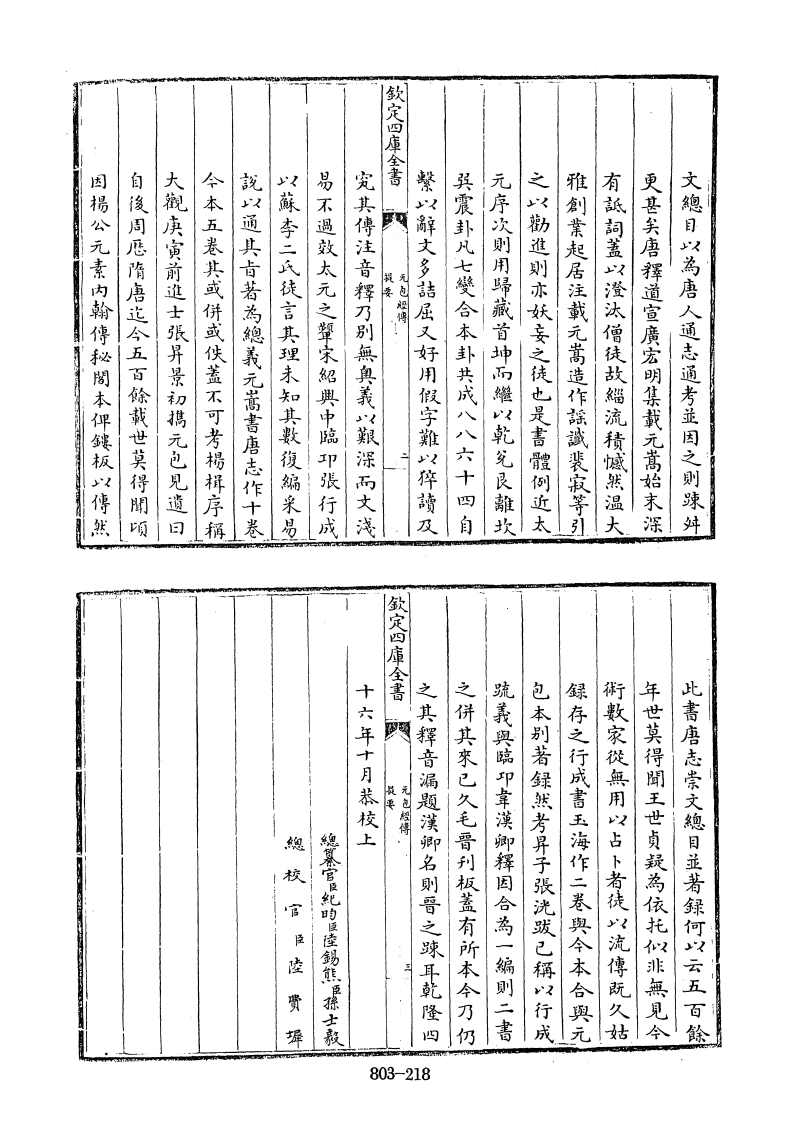 文總目以為唐人通志通考並因之則踈舛
更甚矣唐釋道宣廣宏明集載元嵩始末深
有詆詞蓋以澄汰僧徒故緇流積憾然温大
雅創業起居注載元嵩造作謡讖裴寂等引
之以勸進則亦妖妄之徒也是書體例近太
元序次則用歸藏首坤而繼以乾兌艮離坎
巽震卦凡七變合本卦共成八八六十四自
繫以辭文多詰屈又好用假字難以猝讀及
欽定四庫全書
元包經傳
提要
二
究其傳注音釋乃别無奥義以艱深而文淺
易不過效太元之顰宋紹興中臨卭張行成
以蘇李二氏徒言其理未知其數復編采易
說以通其肯著為總義元嵩書唐志作十卷
今本五卷其或併或佚蓋不可考楊楫序稱
大觀庚寅前進士張昇景初擕元包見遺曰
自後周歴隋唐迄今五百餘載世莫得聞頃
因楊公元素内翰傳秘閣本俾鏤板以傳然
此書唐志崇文總目並著録何以云五百餘
年世莫得聞王世貞疑為依托似非無見今
術數家從無用以占卜者徒以流傳既久姑
録存之行成書玉海作二卷與今本合與元
包本别著録然考昇子張洸跋已稱以行成
疏義與臨卭韋漢卿釋因合為一編則二書
之併其來已久毛晉刋板蓋有所本今乃仍
之其釋音漏題漢卿名則晉之踈耳乾隆四
欽定四庫全書
元包經傳
提要
三
十六年十月恭校上
總纂官臣紀昀臣陸錫熊臣孫士毅
總校官臣陸費墀
803-218